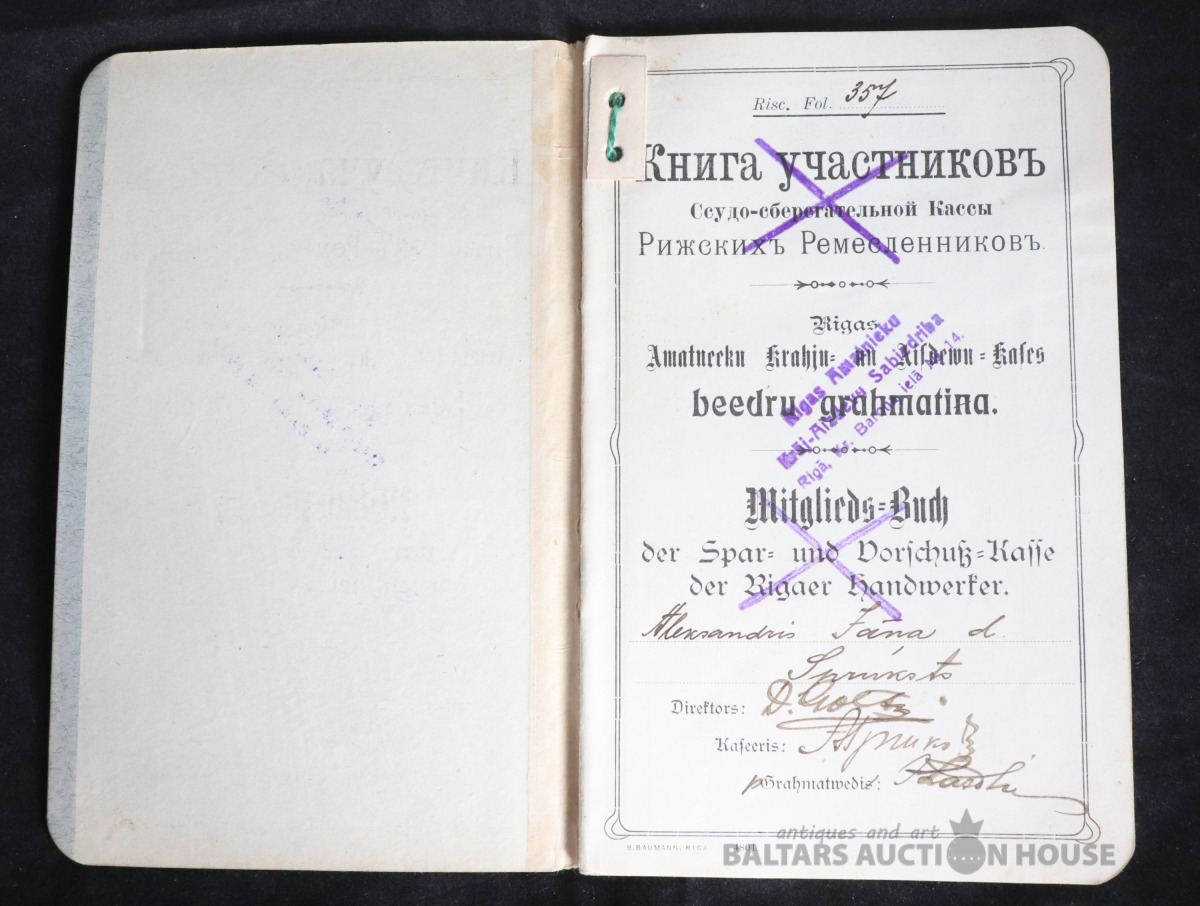 Risc. Fol. 357
Книга участниковъ
Ссудо-сберегательной Кассы
Рижскихъ Ремесленниковъ.
Rigas
Amatneeku Krahju- un Aisdewu-Kases
beedru grahmatiņa.
Rīgas Amatnieku
Krāj-Aizdevu Sabiedrība
Rīgā, Kr. Barona ielā № 14.
Mitglieds-Buch
der Spar- und Vorschuß-Kasse
der Rigaer Handwerker.
Aleksandris Jāna d.
Sprūksts
Direktors: D.
Kaseeris:
Grahmatwedis:
B. BAUMANN, RIGA. 4801
antiques and art
BALTARS AUCTION HOUSE